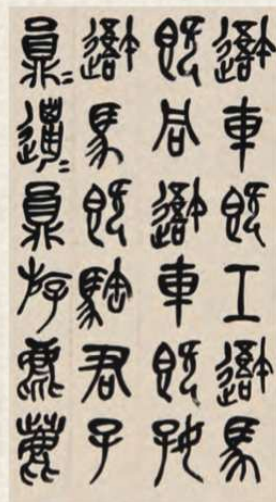 吾車既工吾馬
既同吾車既好
吾馬既𩣡君子
員=邋=員斿麀鹿